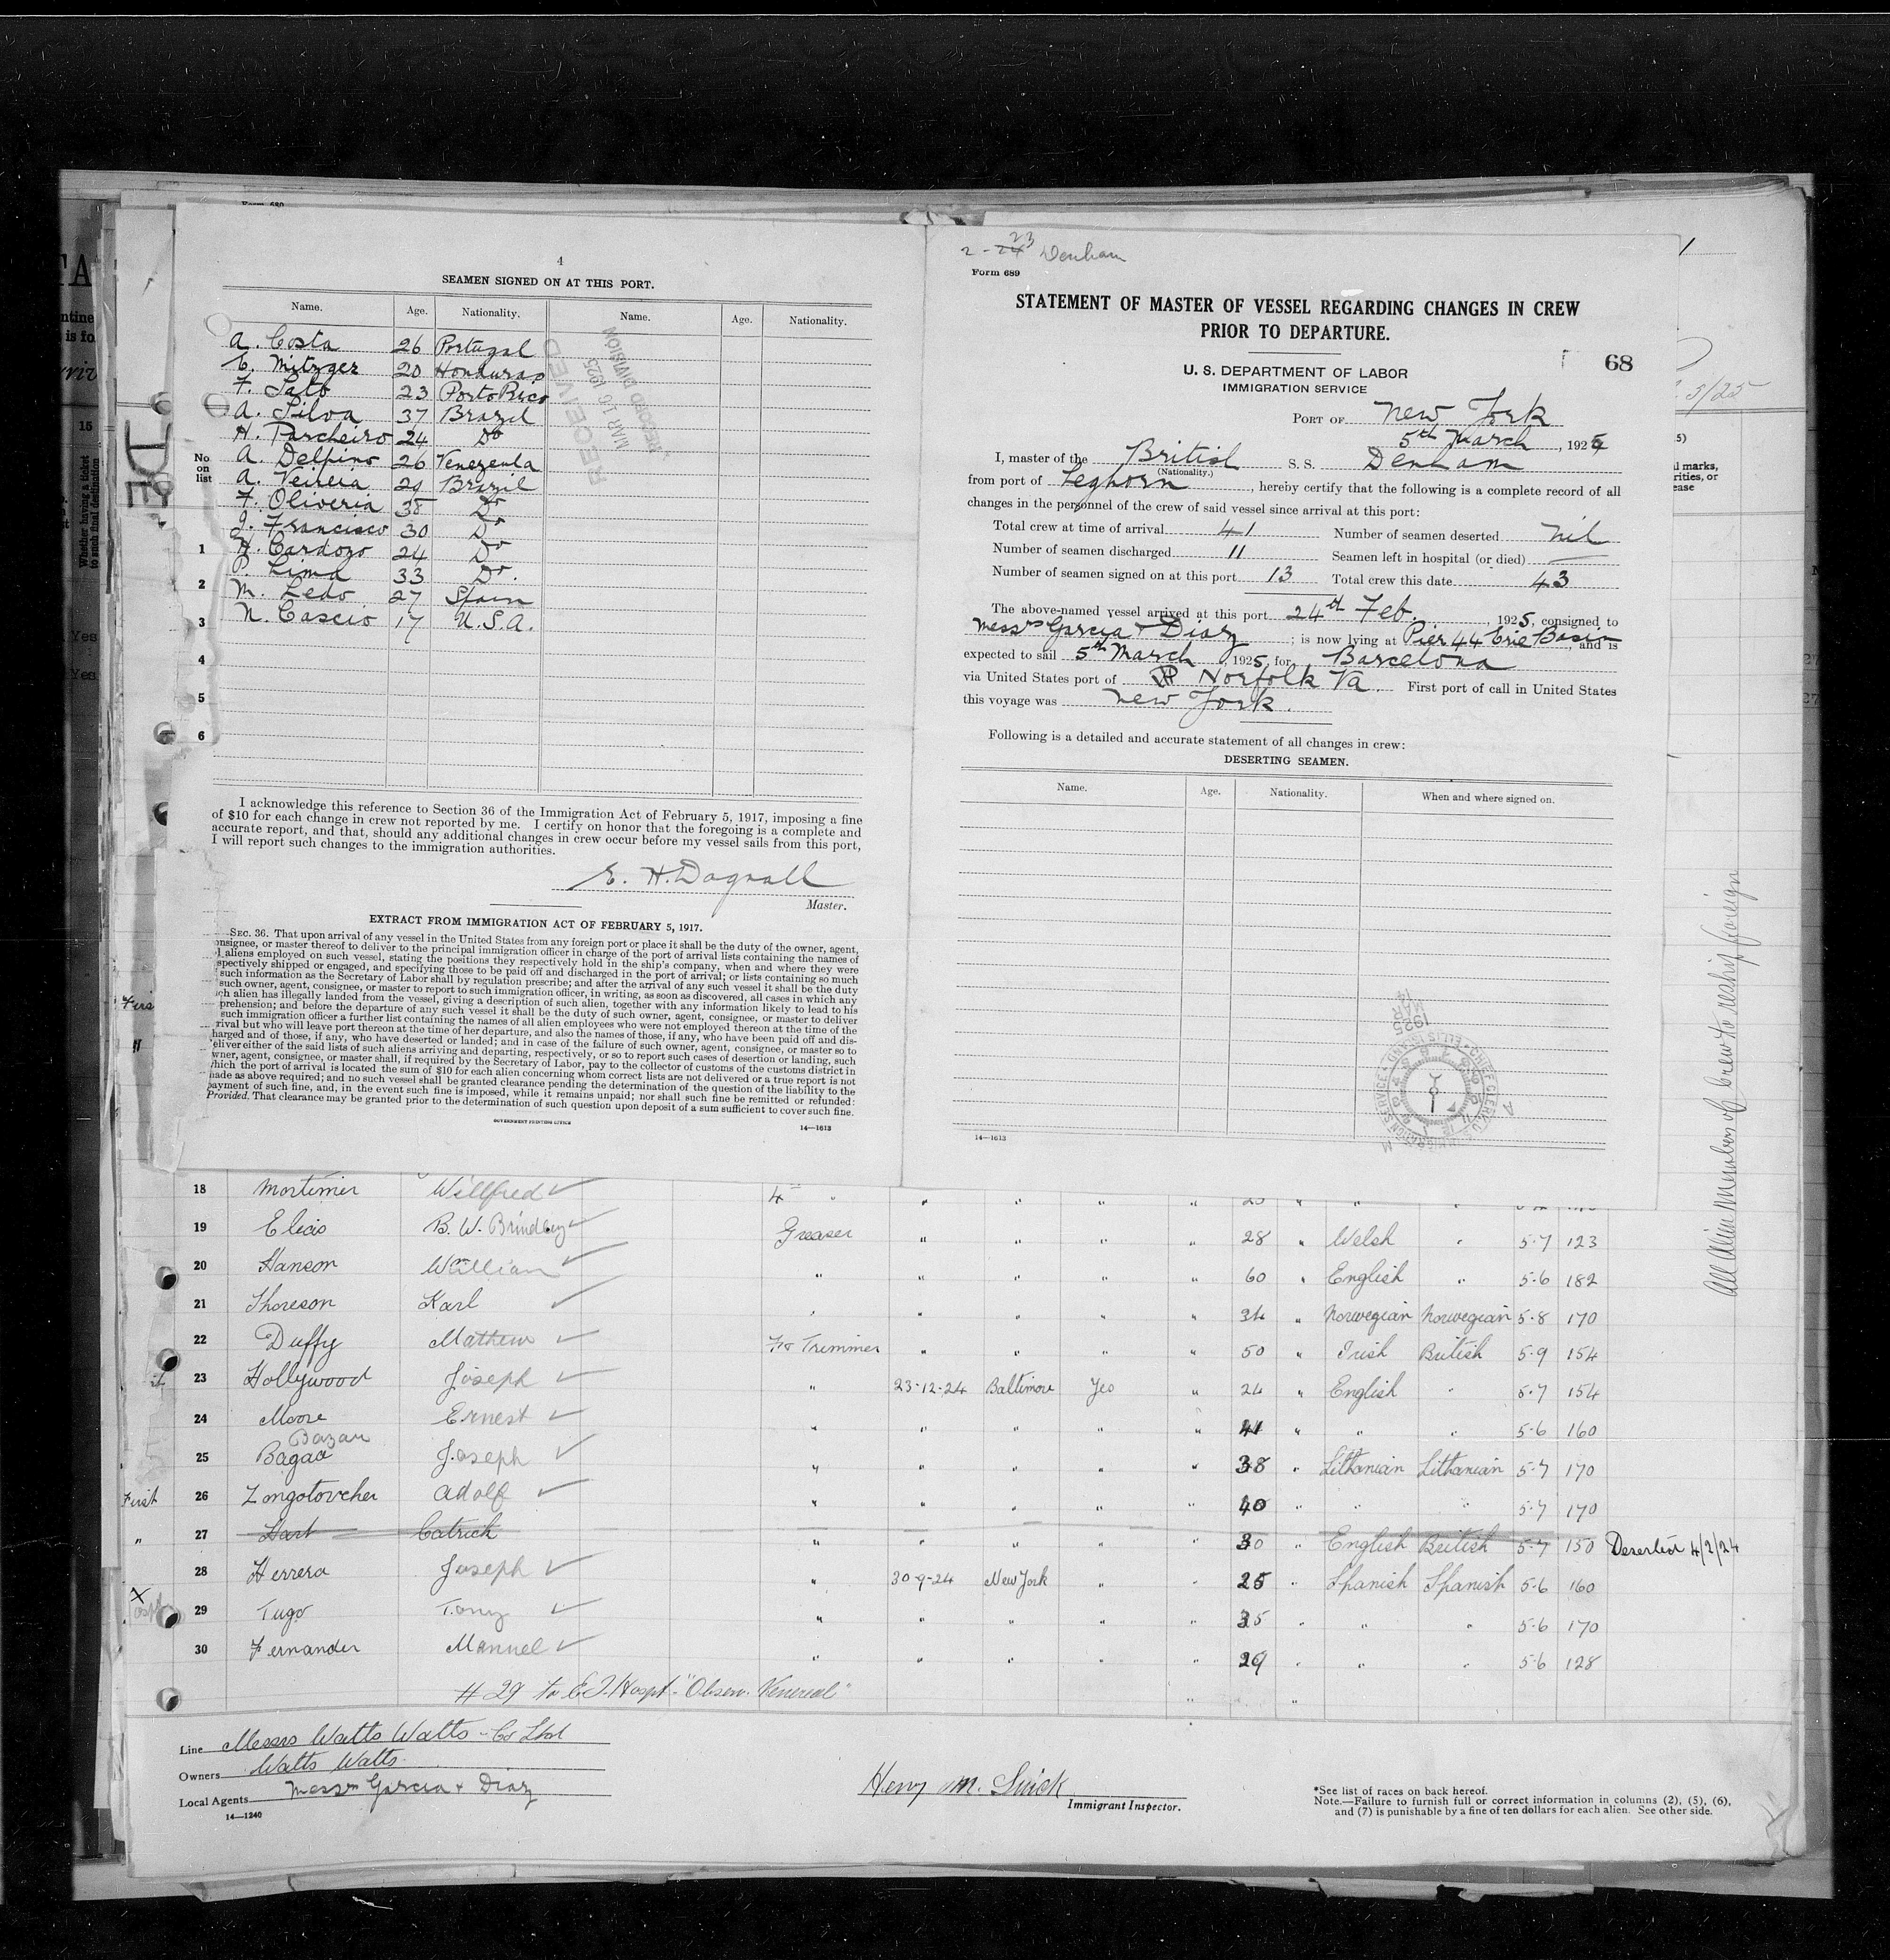 4
SEAMEN SIGNED ON AT THIS PORT.
Name. Age. Nationality. Name. Age. Nationality.
A. Costa 26 Portugal
C. Mitzger 20 Honduras
F. Sato 23 Porto Rico
A. Silva 37 Brazil
H. Parcheiro 24 Do
A. Delpino 26 Venezeula
A. Veiria 29 Brazil
F. Oliveria 38 Do
J. Francisco 30 Do
H. Cardozo 24 Do
P. Lima 33 Do.
M. Ledo 27 Spain
N. Cascio 17 U.S.A.
No on list
1
2
3
4
5
6
RECEIVED
MAR 16 1925
RECORD DIVISION
I acknowledge this reference to Section 36 of the Immigration Act of February 5, 1917, imposing a fine
of $10 for each change in crew not reported by me. I certify on honor that the foregoing is a complete and
accurate report, and that, should any additional changes in crew occur before my vessel sails from this port,
I will report such changes to the immigration authorities.
E. H. Dagnall
Master.
EXTRACT FROM IMMIGRATION ACT OF FEBRUARY 5, 1917.
SEC. 36. That upon arrival of any vessel in the United States from any foreign port or place it shall be the duty of the owner, agent,
onsignee, or master thereof to deliver to the principal immigration officer in charge of the port of arrival lists containing the names of
l aliens employed on such vessel, stating the positions they respectively hold in the ship's company, when and where they were
spectively shipped or engaged, and specifying those to be paid off and discharged in the port of arrival; or lists containing so much
such information as the Secretary of Labor shall by regulation prescribe; and after the arrival of any such vessel it shall be the duty
such owner, agent, consignee, or master to report to such immigration officer, in writing, as soon as discovered, all cases in which any
ch alien has illegally landed from the vessel, giving a description of such alien, together with any information likely to lead to his
prehension; and before the departure of any such vessel it shall be the duty of such owner, agent, consignee, or master to deliver
such immigration officer a further list containing the names of all alien employees who were not employed thereon at the time of the
rival but who will leave port thereon at the time of her departure, and also the names of those, if any, who have been paid off and dis-
harged and of those, if any, who have deserted or landed; and in case of the failure of such owner, agent, consignee, or master so to
eliver either of the said lists of such aliens arriving and departing, respectively, or so to report such cases of desertion or landing, such
wner, agent, consignee, or master shall, if required by the Secretary of Labor, pay to the collector of customs of the customs district in
hich the port of arrival is located the sum of $10 for each alien concerning whom correct lists are not delivered or a true report is not
nade as above required; and no such vessel shall be granted clearance pending the determination of the question of the liability to the
ayment of such fine, and, in the event such fine is imposed, while it remains unpaid; nor shall such fine be remitted or refunded:
Provided. That clearance may be granted prior to the determination of such question upon deposit of a sum sufficient to cover such fine.
GOVERNMENT PRINTING OFFICE
14—1613
2-24 23 Denham
Form 689
STATEMENT OF MASTER OF VESSEL REGARDING CHANGES IN CREW
PRIOR TO DEPARTURE.
68
U. S. DEPARTMENT OF LABOR
IMMIGRATION SERVICE
PORT OF New York
5th March, 1925
I, master of the British S. S. Denham
(Nationality.)
from port of Leghorn, hereby certify that the following is a complete record of all
changes in the personnel of the crew of said vessel since arrival at this port:
Total crew at time of arrival 41 Number of seamen deserted Nil
Number of seamen discharged 11 Seamen left in hospital (or died) —
Number of seamen signed on at this port 13 Total crew this date 43
The above-named vessel arrived at this port 24th Feb., 1925, consigned to
Messrs Garcia + Diaz; is now lying at Pier 44 Erie Basin, and is
expected to sail 5th March, 1925, for Barcelona
via United States port of Norfolk Va. First port of call in United States
this voyage was New York.
Following is a detailed and accurate statement of all changes in crew:
DESERTING SEAMEN.
Name. Age. Nationality. When and where signed on.
1925 MAR 14
14—1613
All Alien Members of Crew to reship foreign
18 Mortimer Willfred ✓ 4 " " " " "
19 Elias B. W. Brindley ✓ Greaser " " " " 28 " Welsh " 5-7 123
20 Hanson William ✓ " " " " " 60 " English " 5-6 182
21 Thoreson Karl ✓ " " " " " 34 " Norwegian Norwegian 5-8 170
22 Duffy Mathew ✓ Fr Trimmer " " " " 50 " Irish British 5-9 154
23 Hollywood Joseph ✓ " 23-12-24 Baltimore Yes " 24 " English " 5-7 154
24 Moore Ernest ✓ " " " " " 41 " " " 5-6 160
Bazan
25 Bagaa Joseph ✓ " " " " " 38 " Lithanian Lithanian 5-7 170
First 26 Zongotovcher Adolf ✓ " " " " " 40 " " " 5-7 170
" 27 Hart Catrick " " " " " 30 " English British 5-7 150 Deserted 4/2/24
28 Herrera Joseph ✓ " 30-9-24 New York " " 25 " Spanish Spanish 5-6 160
X 29 Tugo Tony ✓ " " " " " 35 " " " 5-6 170
30 Fernander Manuel ✓ " " " " " 29 " " " 5-6 128
# 29 to E.I. Hospt - "Observ. Venereal"
Line Messrs Watts Watts - Co Ltd
Owners Watts Watts
Local Agents Messrs Garcia + Diaz
14—1240
Henry M. Smick
Immigrant Inspector.
*See list of races on back hereof.
Note.—Failure to furnish full or correct information in columns (2), (5), (6),
and (7) is punishable by a fine of ten dollars for each alien. See other side.